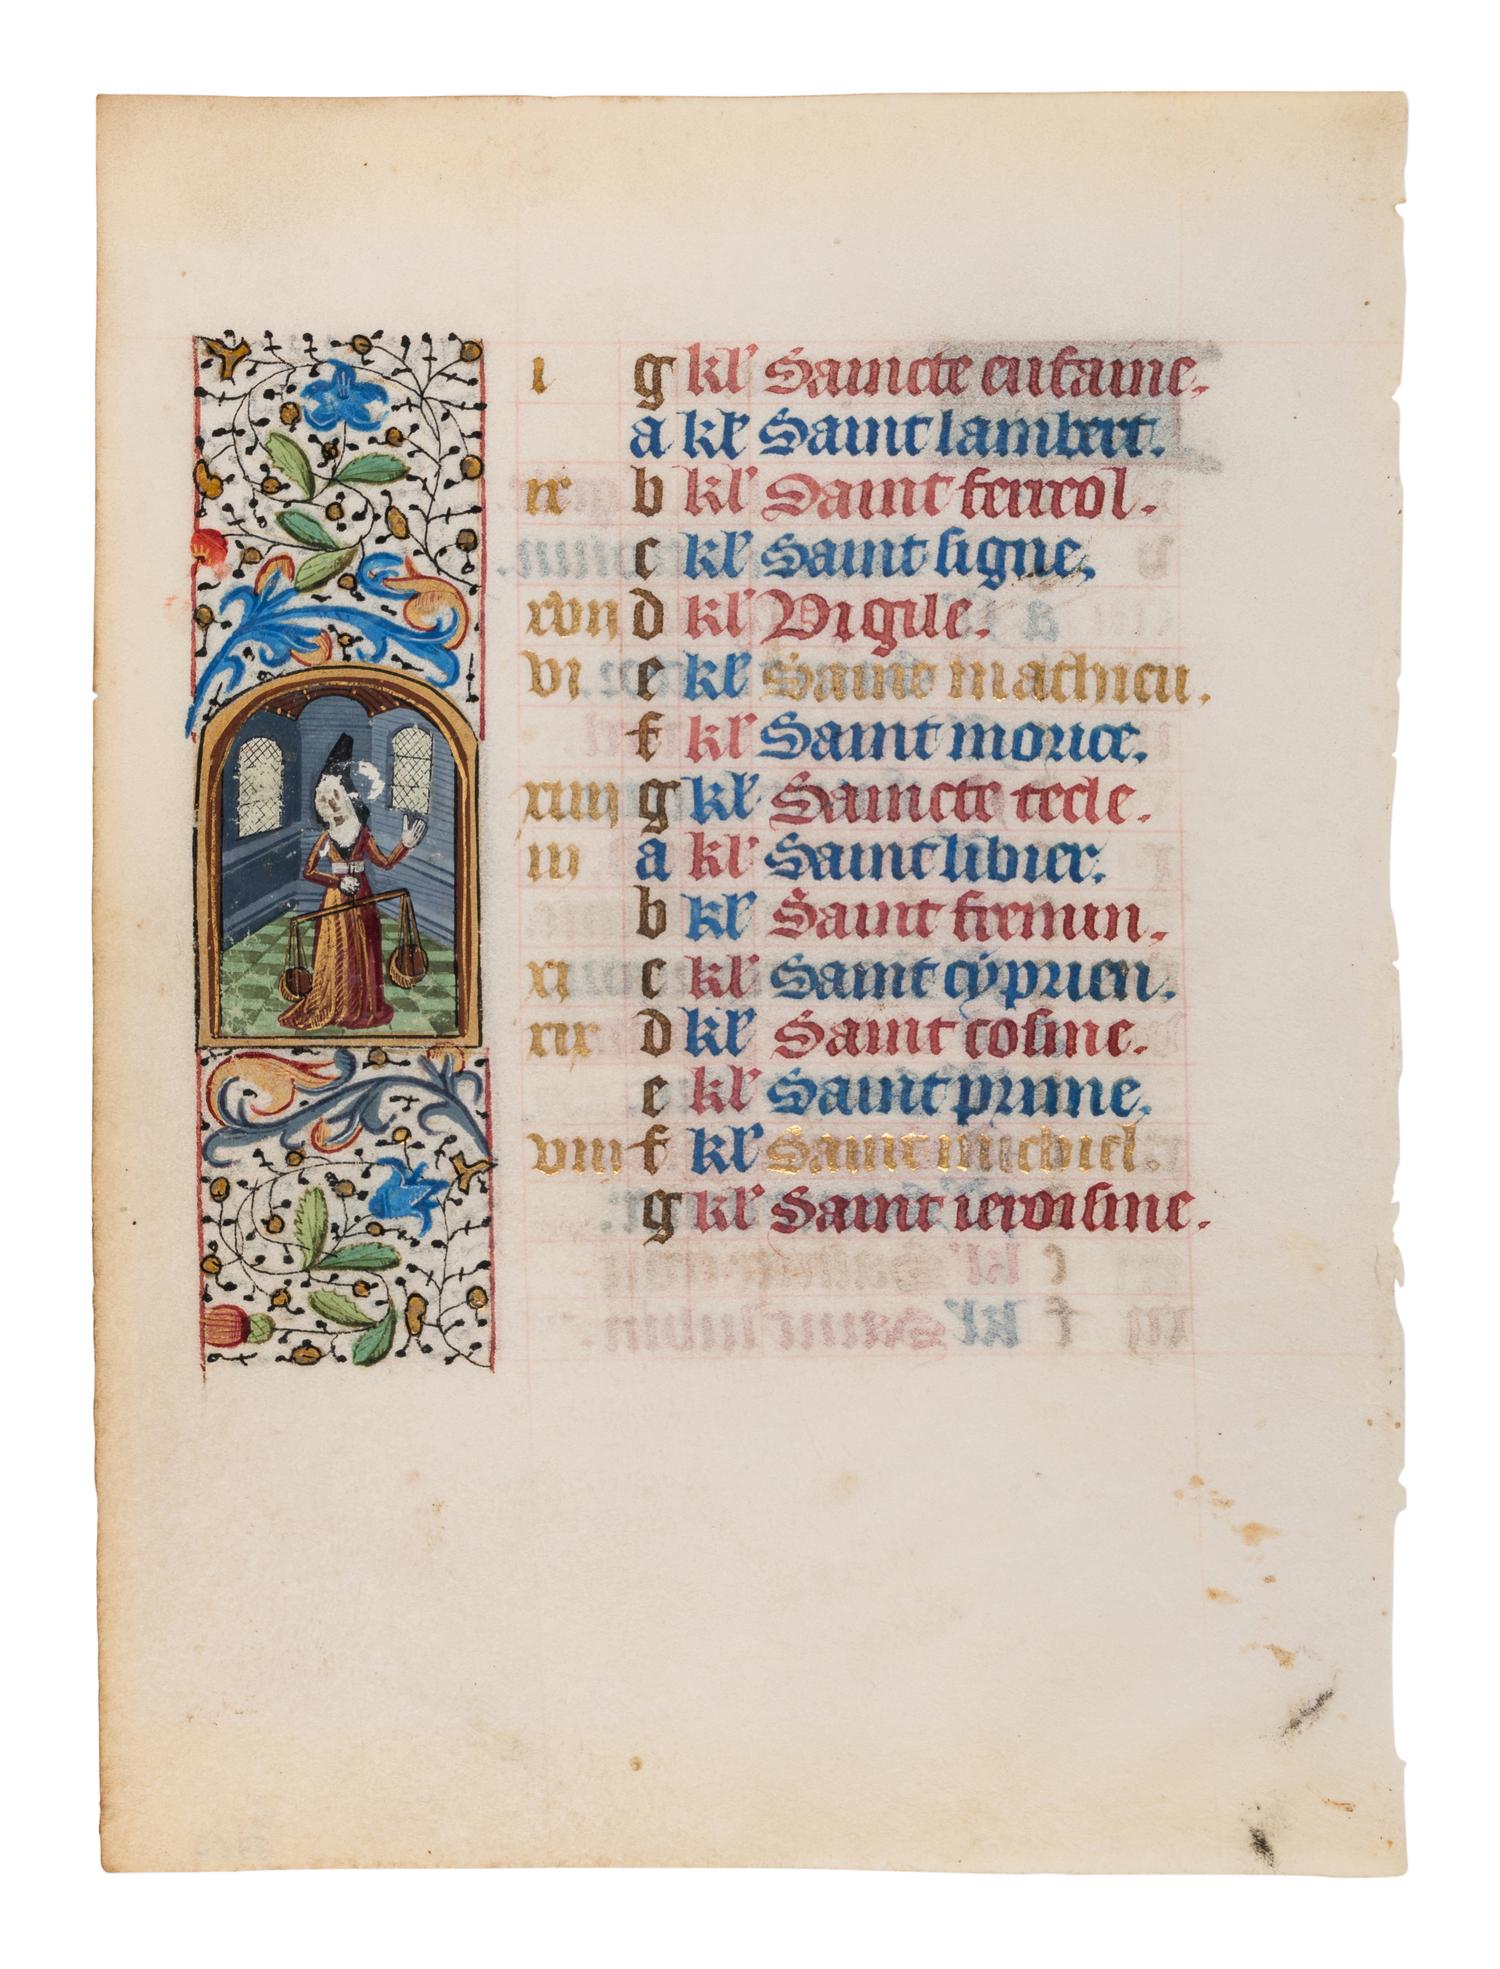 i g kl' Saincte eufaine.
a kl' Saint lambert.
ix b kl' Saint ferreol.
c kl' Saint signe.
xvii d kl' Vigile.
vi e kl' Saint mathieu.
f kl' Saint morice.
xiiii g kl' Saincte tecle.
iii a kl' Saint libier.
b kl' Saint firmin.
xi c kl' Saint cyprien.
xix d kl' Saint cosme.
e kl' Saint prime.
viii f kl' Saint michiel.
g kl' Saint ieroisme.